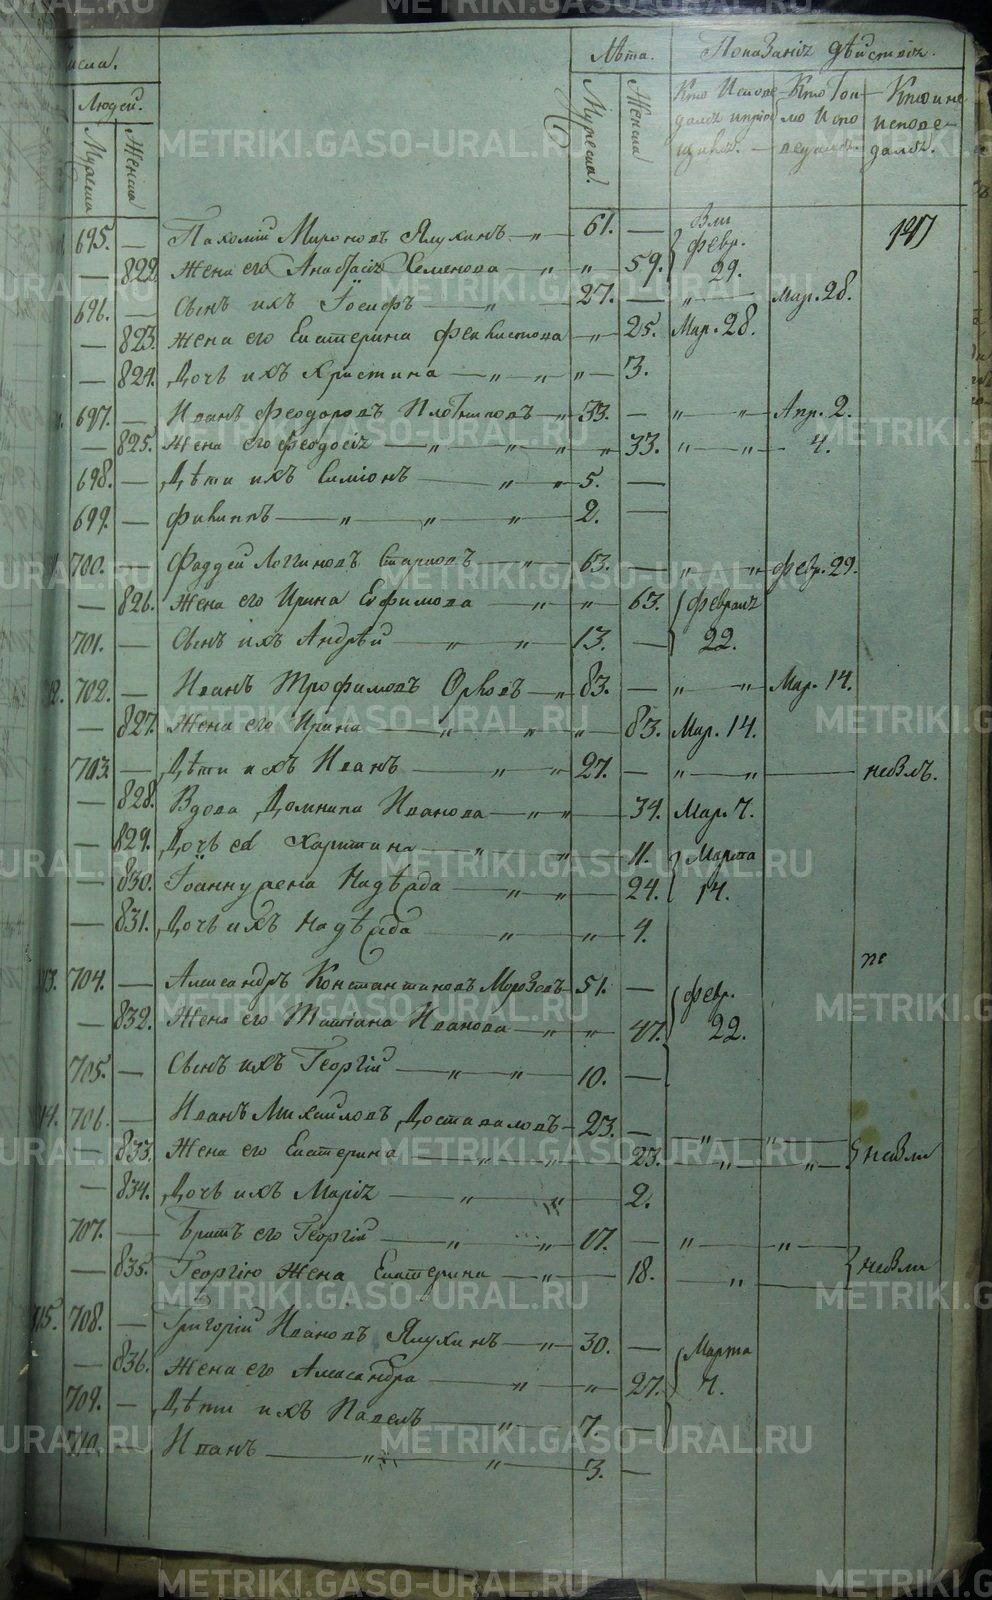 исла.
Людей.
Мужеска
Женска
Лѣта.
Мужеска.
Женска
Показанія дѣйствія.
Кто Исповѣдался и пріобщился.
Кто Токмо Исповѣдался.
Кто и не исповѣдался.
197
695. — Пахомій Мироновъ Ялухинъ — 61. — Были февр. 29.
— 822. Жена его Анастасія Семенова — 59.
696. — Сынъ ихъ Іосифъ — 27. — Мар. 28.
— 823. Жена его Екатерина Феклистова — 25. Мар. 28.
— 824. Дочь ихъ Христина — 3.
697. — Иванъ Феодоровъ Плотниковъ — 33. — Апр. 2.
— 825. Жена его Феодосія — 33. — 4.
698. — Дѣти ихъ Симіонъ — 5. —
699. — Филиппъ — 2. —
700. — Фаддей Логгиновъ Старковъ — 63. — Февр. 29.
— 826. Жена его Ирина Евфимова — 63. Февраля 22.
701. — Сынъ ихъ Андрей — 13. —
12. 702. — Иванъ Трофимовъ Орловъ — 83. — Мар. 14.
— 827. Жена его Ирина — 83. Мар. 14.
703. — Дѣти ихъ Иванъ — 27. — небылъ.
— 828. Вдова Домника Иванова — 34. Мар. 7.
— 829. Дочь ея Харитина — 11. Марта 14.
— 830. Надежда — 24.
— 831. Дочь ихъ Надежда — 4.
не
13. 704. — Александръ Константиновъ Морозовъ 51. — февр. 22.
— 832. Жена его Татіана Иванова — 47.
705. — Сынъ ихъ Георгій — 10. —
14. 706. — Иванъ Михайловъ Доставаловъ — 23. —
— 833. Жена его Екатерина — 23. — небыли
— 834. Дочь ихъ Марія — 2.
707. — Братъ его Георгій — 17. —
— 835. Георгію Жена Екатерина — 18. — небыли
15. 708. — Григорій Ивановъ Ялухинъ — 30. — Марта 7.
— 836. Жена его Александра — 27.
709. — Дѣти ихъ Павелъ — 7. —
710. — Иванъ — 3. —
METRIKI.GASO-URAL.RU